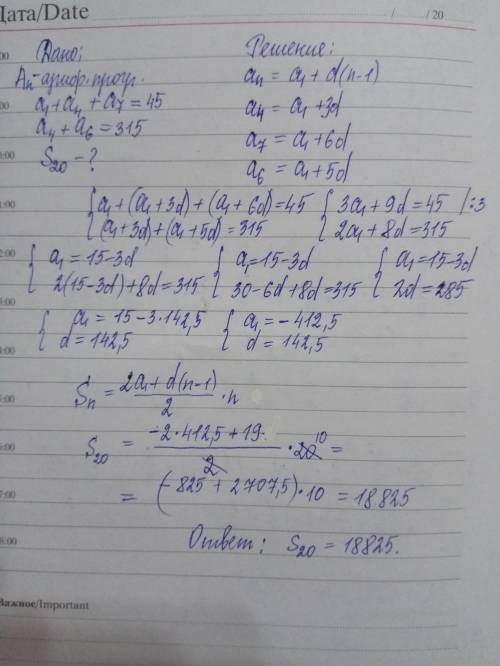 Дата/Date / / 20
Дано:
Аn-ариф. прогр.
a₁+a₄+a₇=45
a₄+a₆=315
S₂₀-?
Решение:
an = a₁+d(n-1)
a₄ = a₁+3d
a₇ = a₁+6d
a₆ = a₁+5d
{a₁+(a₁+3d)+(a₁+6d)=45 {3a₁+9d=45 /:3
{(a₁+3d)+(a₁+5d)=315 {2a₁+8d=315
{a₁=15-3d {a₁=15-3d {a₁=15-3d
{2(15-3d)+8d=315 {30-6d+8d=315 {2d=285
{a₁=15-3·142,5 {a₁=-412,5
{d=142,5 {d=142,5
Sn = (2a₁+d(n-1))/2 · n
S₂₀ = (-2·412,5+19·)/2 · 20 10 =
= (-825+2707,5)·10 = 18825
Ответ: S₂₀=18825.
Важное/Important